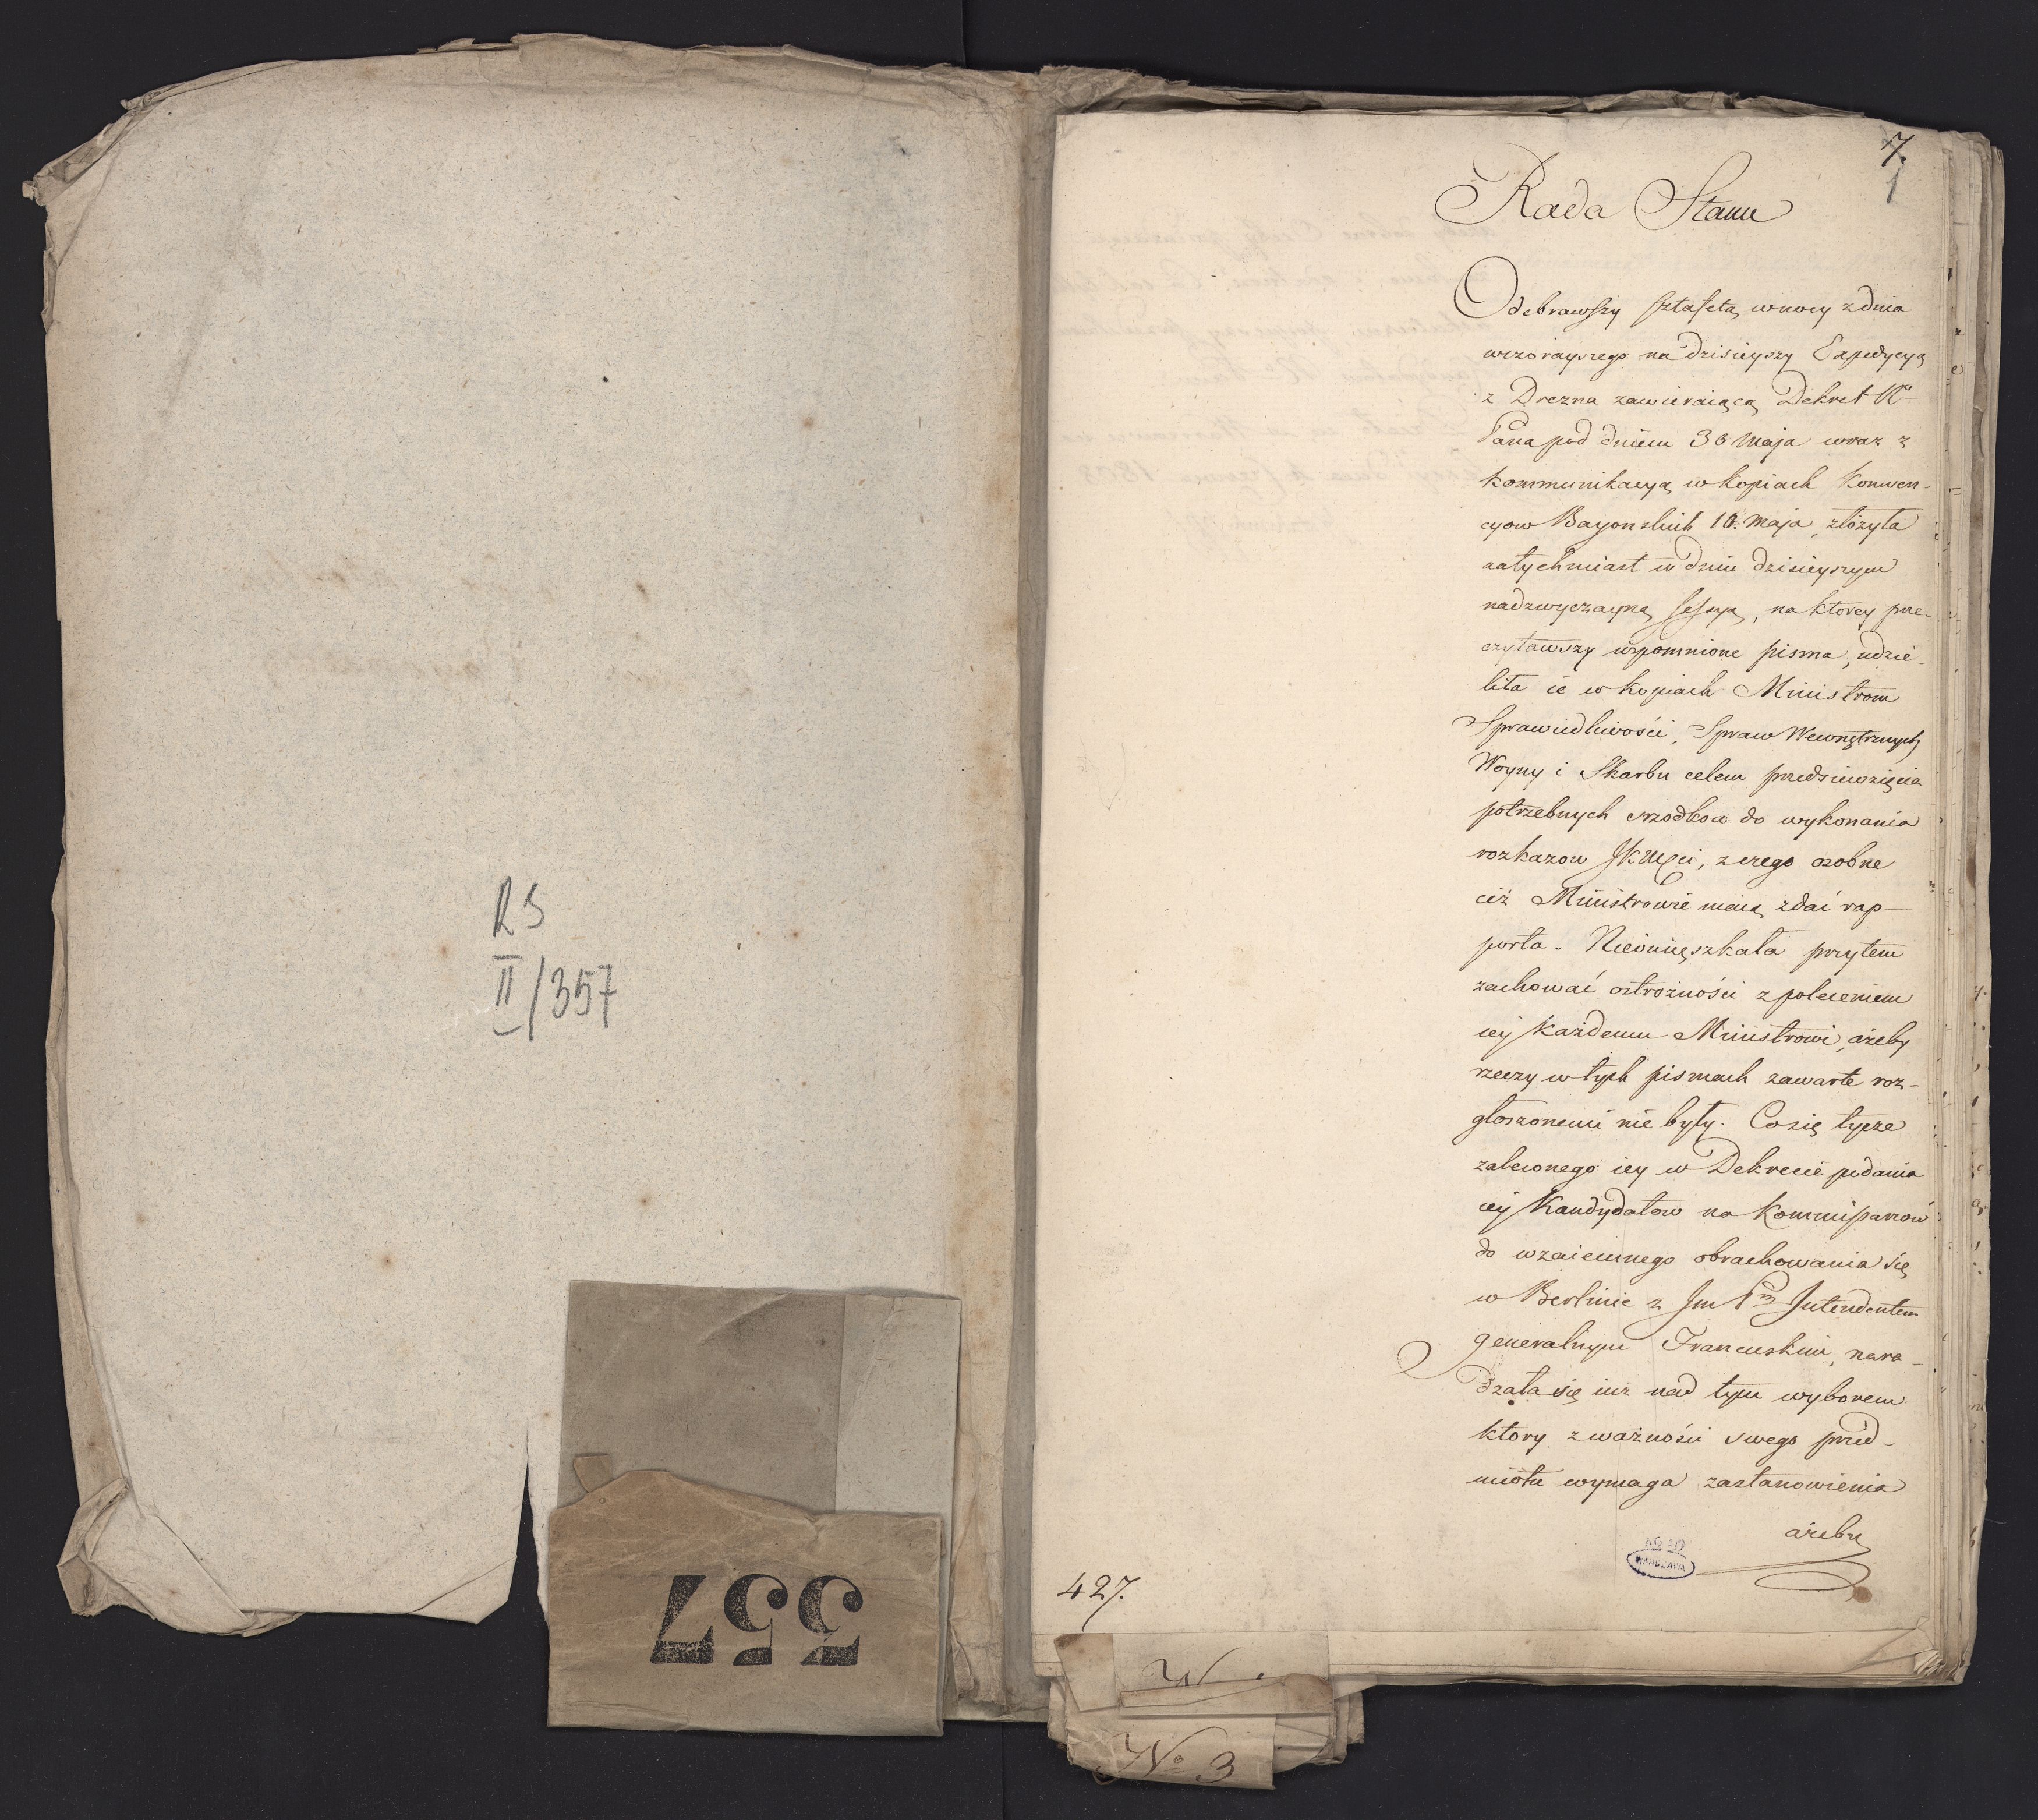 RS
II/357
357
7.
1
Rada Stanu
Odebrawszy sztafetą w nocy z dnia
wczorayszego na dzisieyszy Expedycyą
z Drezna zawieraiącą Dekret N
Pana pod dniem 30 Maja wraz z
kommunikacyą w kopiach Konwen-
cyow Bayonskich 10. Maja, złożyła
natychmiast w dniu dzisieyszym
nadzwyczayną sessyą, na ktorey prze-
czytawszy wspomnione pisma, udzie-
liła ie w kopiach Ministrom
Sprawiedliwości, Spraw Wewnętrznych
Woyny i Skarbu celem przedsiewzięcia
potrzebnych srzodkow do wykonania
rozkazow JKMci, z czego osobne
ciż Ministrowie maią zdać rap-
porta. Nieomięszkała przytem
zachować ostrożności z poleceniem
iey każdemu Ministrowi, ażeby
rzeczy w tych pismach zawarte roz-
głoszonemi nie były. Co się tycze
zaleconego iey w Dekrecie podania
iey Kandydatow na Kommissarzow
do wzaiemnego obrachowania się
w Berlinie z Jm Pm Intendentem
generalnym Francuskim, nara-
dzała się iuz nad tym wyborem
ktory z ważności swego przed-
miotu wymaga zastanowienia
ażeby
WARSZAWA
427.
N
No 3